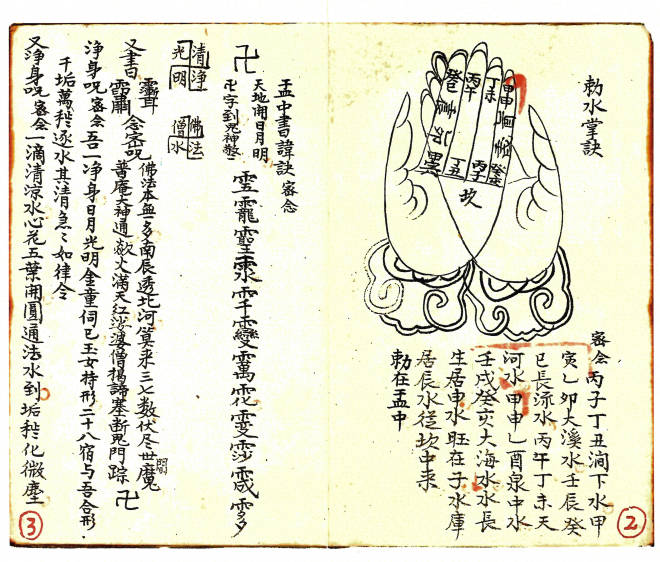 勅水掌訣
甲申
丁未
丙午
丁丑
丙子
坎
密念丙子丁丑澗下水甲
寅乙卯大溪水壬辰癸
巳長流水丙午丁未天
河水甲申乙酉泉中水
壬戌癸亥大海水水長
生居申水旺在子水庫
居辰水從坎中来
勅在盂中
2
盂中書諱訣密念
天地開日月明
卍字到鬼神驚
卍
清净
光明
佛法
僧水
又書
念密呪
佛法本無多南辰透北河算来三七数伏尽世魔
普庵大神通發火滿天紅沙婆僧揭諦塞断鬼門踪卍
净身呪密念吾一净身日月光明金童伺已玉女持形二十八宿与吾合形.
千垢萬秽逐水其清急々如律令
又净身呪密念一滴清凉水心花五葉開圓通法水到垢秽化微塵
3